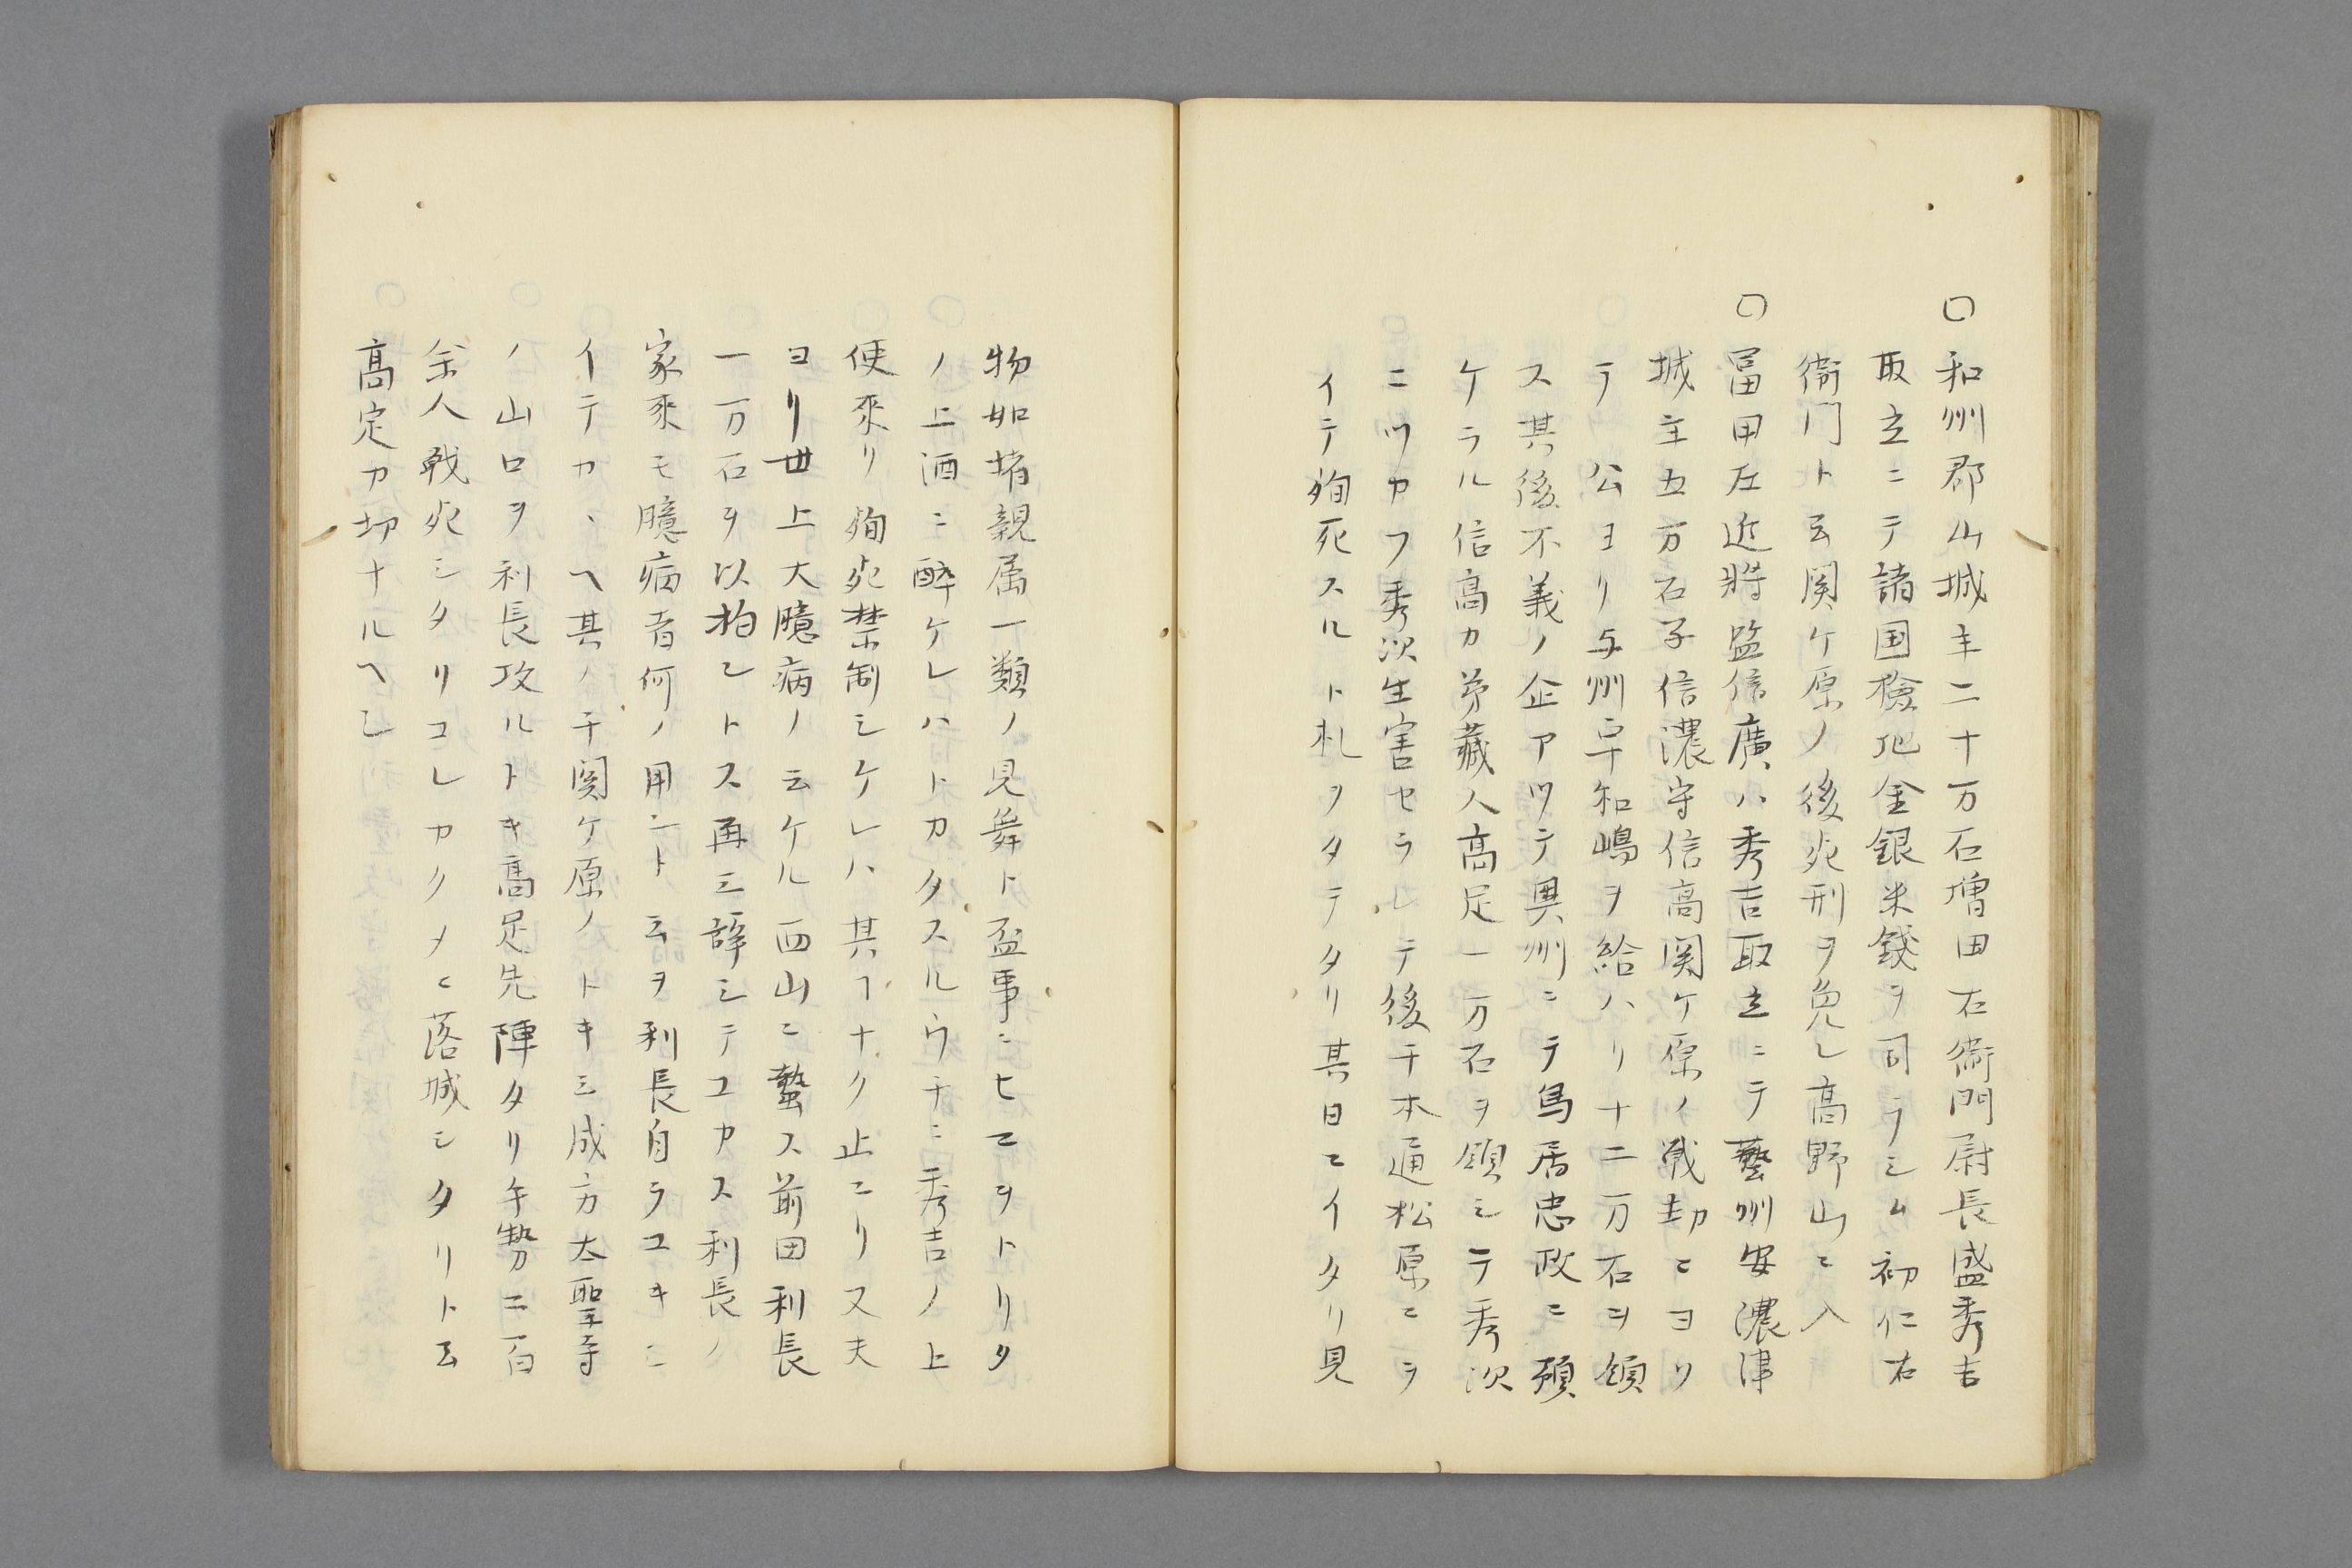 〇和州郡山城主二十万石増田右衛門尉長盛秀吉
取立ニテ諸国検地金銀米銭ヲ司ラシム初仁右
衛門ト云関ケ原ノ後死刑ヲ免レ高野山ニ入
〇冨田左近将監信廣ハ秀吉取立ニテ藝州安濃津
城主五万石子信濃守信高関ケ原ノ戦功ニヨリ
テ 公ヨリ与州宇和嶋ヲ給ハリ十二万石ヲ領
ス其後不義ノ企アツテ奥州ニテ鳥居忠政ニ預
ケラル信高カ弟蔵人高定一万石ヲ領シテ秀次
ニツカフ秀次生害セラレテ後千本通松原ニヲ
イテ殉死スルト札ヲタテタリ其日ニイタリ見
物如堵親属一類ノ見舞ト盃事ニヒマヲトリタ
ノ上酒ニ酔ケレハトカクスルウチニ秀吉ノ上
使来リ殉死禁制シケレハ其ヿナク止ニリ又夫
ヨリ世上大臆病ノ云ケル西山ニ蟄ス前田利長
一万石ヲ以抱レトス再三辞シテユカス利長ノ
家来モ臆病者何ノ用ニト云ヲ利長自ラユキニ
イテカヽヘ其ノ千関ケ原ノトキ三成方大聖寺
ノ山口ヲ利長攻ルトキ高定先陣タリ手勢二百
余人戦死シタリコレカタメニ落城シタリト云
高定カ功ナルヘシ